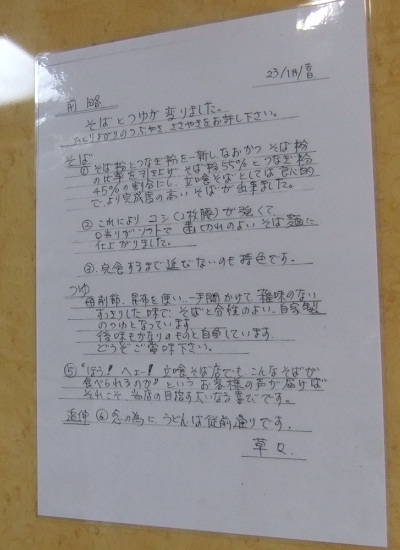 23/1月/吉日
前略
そばとつゆが変りました。
ひとりよがりのつぶやき ささやきをお許し下さい。
そば
① そば粉とつなぎ粉を一新しなおかつ そば粉
の比率を引き上げ そば粉55%とつなぎ粉
45%の割合にし、立喰そばとしては
で、より完成度の高い そばが出来ました。
② これにより コシ(
)が強くて
口当りがソフトで 歯切れのよい そば麺に
仕上がりました。
③ 完食するまで延びないのも特色です。
つゆ
削節、昆布を使い、一手間かけて 雑味のない
すっきりした味で、そばと合性のよい、自家製
のつゆとなっています。
後味もかなりのものと自負しています。
どうぞご賞味下さい。
⑤ "ほう! ヘェー! 立喰そば店でも こんなそばが
食べられるのか" といつ お客様の声が届けば
それこそ 当店の目指す大いなる喜びです。
追伸 ⑥ 念の為に うどんは従前通りです。
草々.